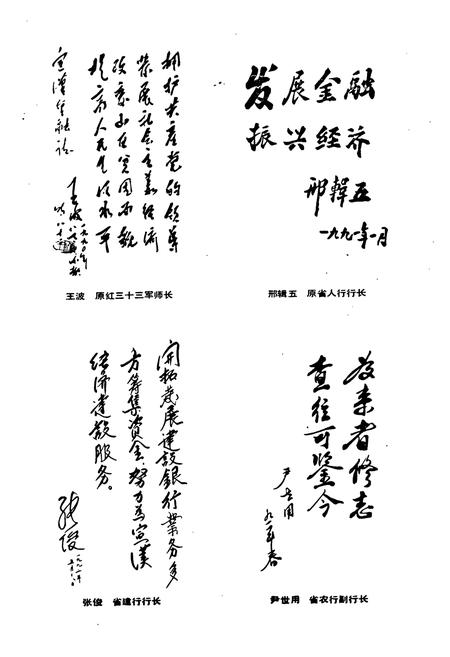 拥护共产党的领导
发展社会主义经济
改变山区贫困面貌
提高人民生活水平
宣漢金融志
王波
王波 原红三十三军师长
发展金融
振兴经济
邢輯五
一九九一年一月
邢辑五 原省人行行长
開拓發展建設銀行業務多
方籌集資金,努力為宣漢
经济建設服務。
张俊
张俊 省建行行长
为来者修志
查往可鉴今
尹世用
九一年春
尹世用 省农行副行长